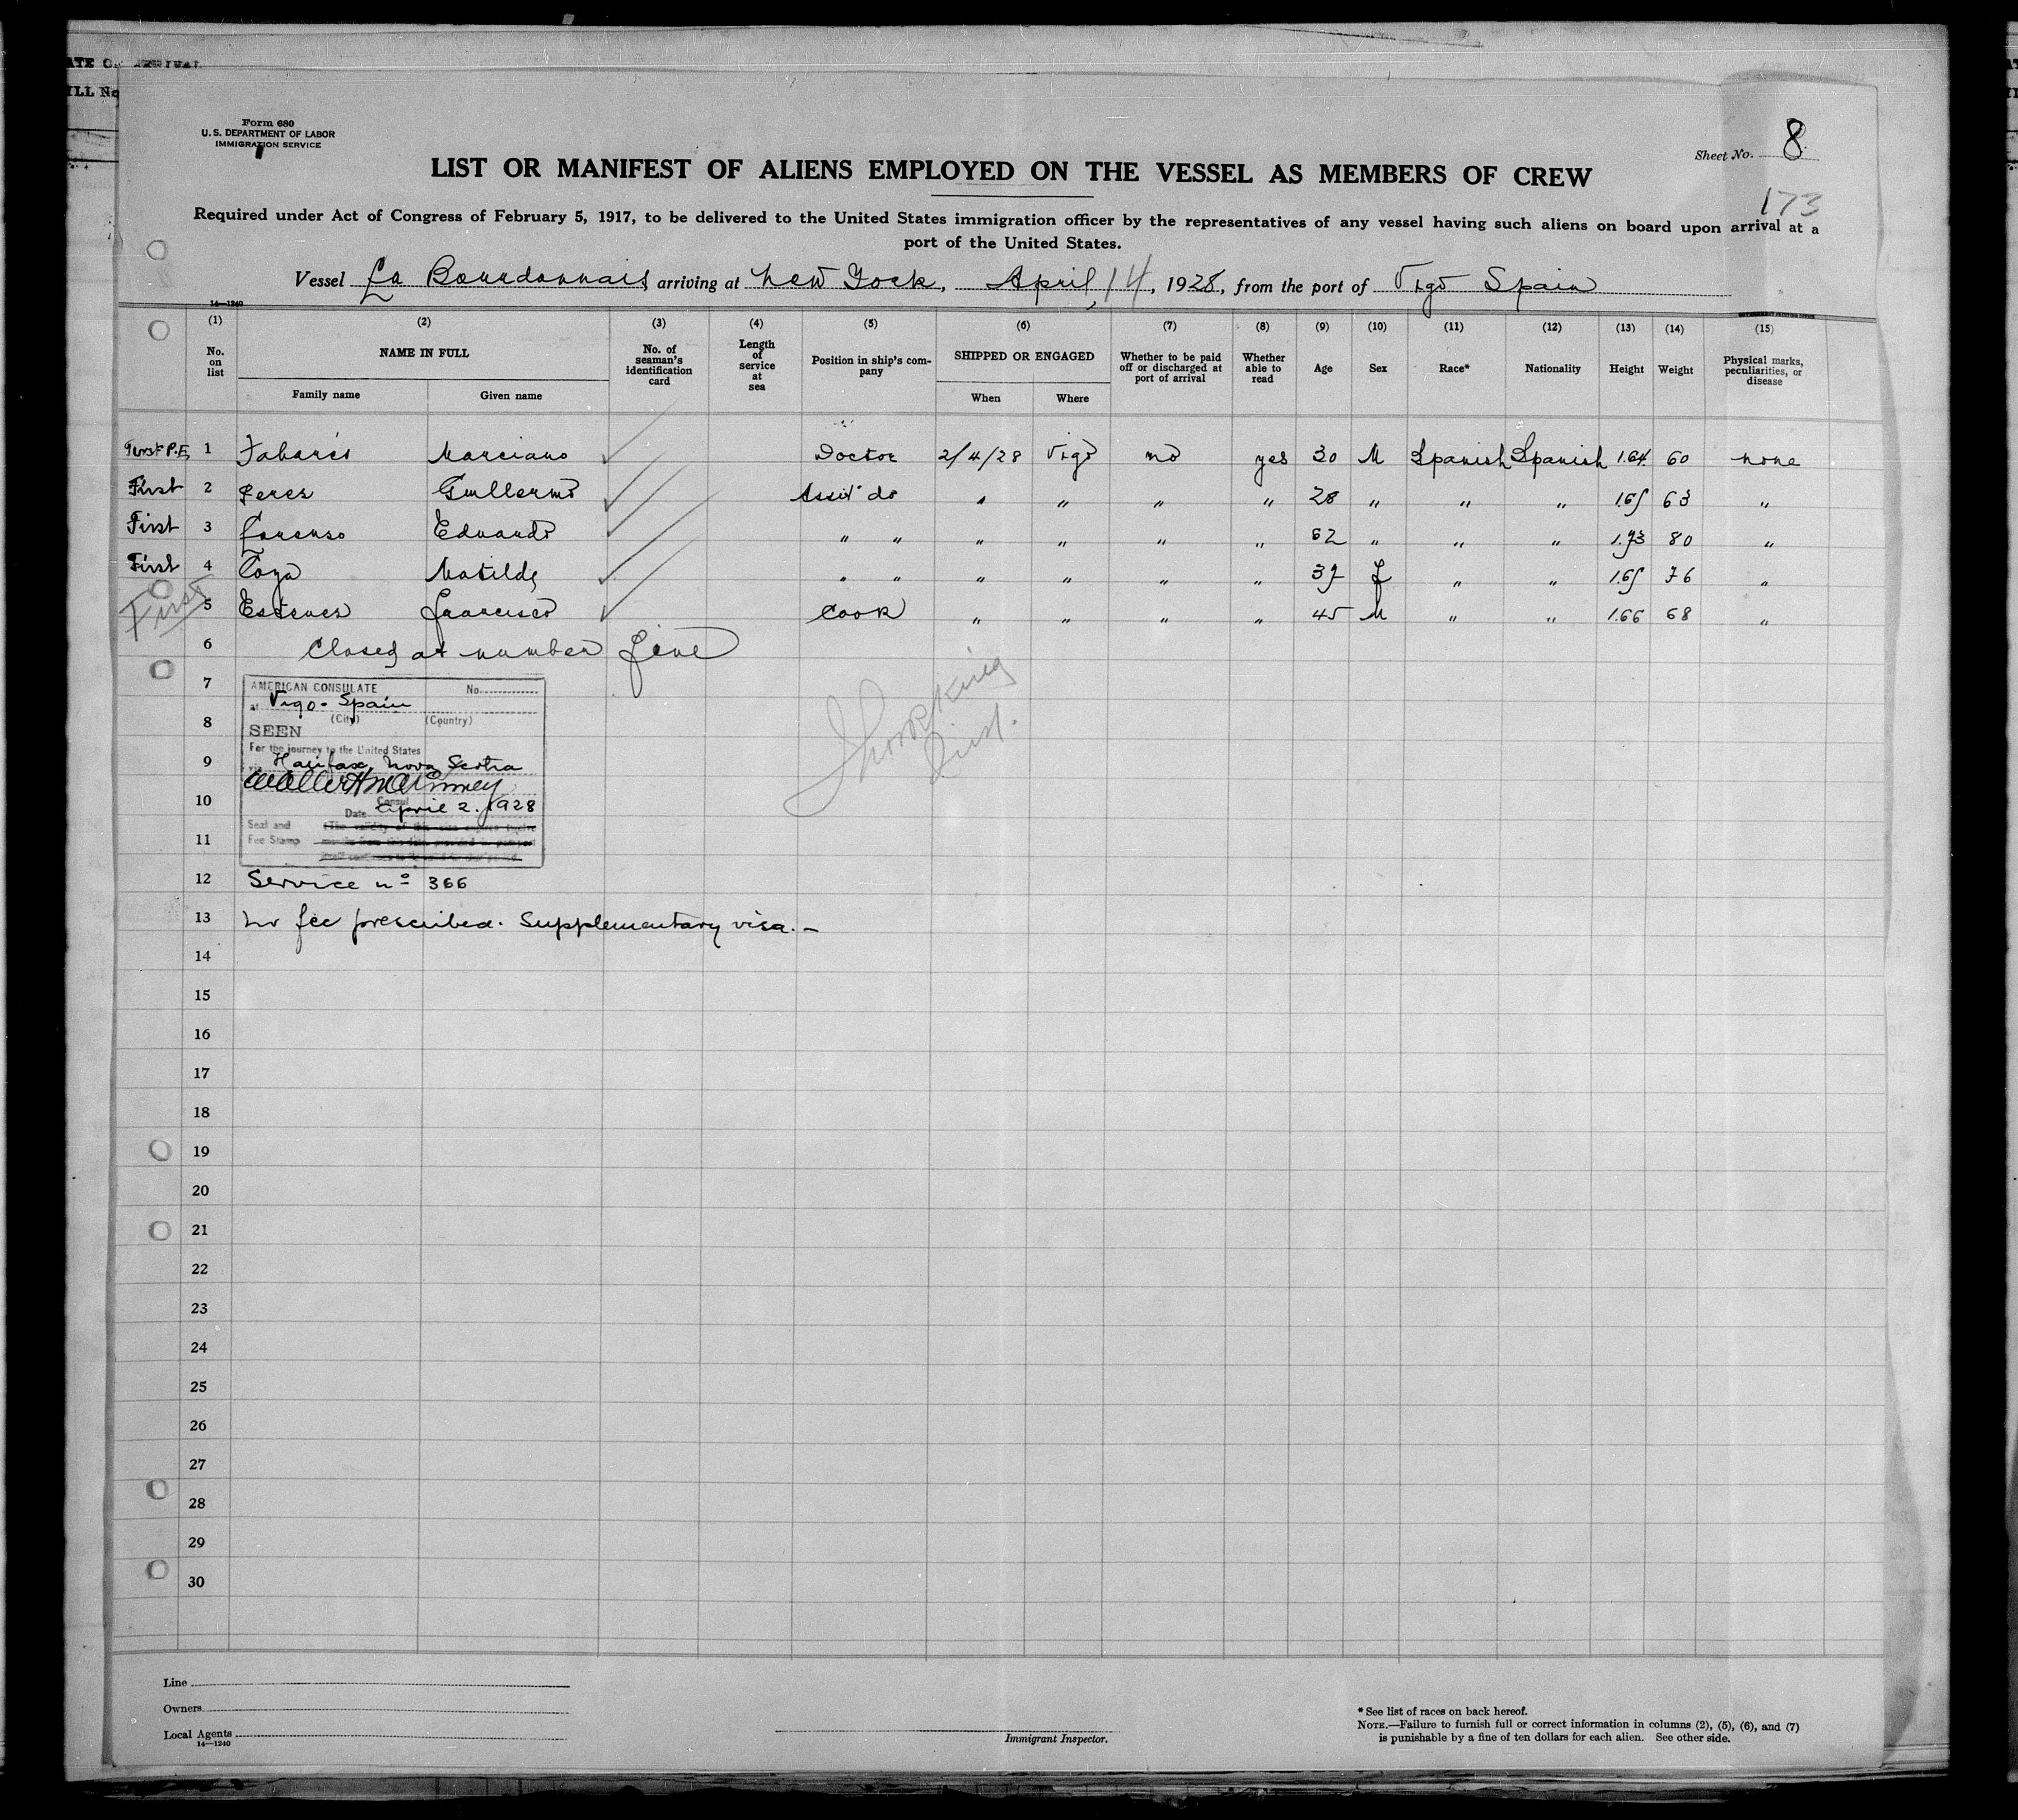 Form 680
U. S. DEPARTMENT OF LABOR
IMMIGRATION SERVICE
Sheet No. 8
LIST OR MANIFEST OF ALIENS EMPLOYED ON THE VESSEL AS MEMBERS OF CREW
173
Required under Act of Congress of February 5, 1917, to be delivered to the United States immigration officer by the representatives of any vessel having such aliens on board upon arrival at a
port of the United States.
Vessel La Bourdonnais arriving at New York, April 14, 1928, from the port of Vigo Spain
14—1240
(1) (2) (3) (4) (5) (6) (7) (8) (9) (10) (11) (12) (13) (14) (15)
No. on list NAME IN FULL No. of seaman's identification card Length of service at sea Position in ship's company SHIPPED OR ENGAGED Whether to be paid off or discharged at port of arrival Whether able to read Age Sex Race* Nationality Height Weight Physical marks, peculiarities, or disease
Family name Given name When Where
First P.E. 1 Tabarés Marciano Doctor 2/4/28 Vigo no yes 30 M Spanish Spanish 1.64 60 none
First 2 Perez Guillermo Assit do " " " " 28 " " " 1.65 63 "
First 3 Lorenzo Eduardo " " " " " " 62 " " " 1.73 80 "
First 4 Toya Matilde " " " " " " 37 f " " 1.65 76 "
First 5 Estevez Francisco Cook " " " " 45 M " " 1.66 68 "
6 Closed at number five
7
AMERICAN CONSULATE No.
at Vigo. Spain
(City) (Country)
8
SEEN
For the journey to the United States
9
via Halifax, Nova Scotia
Consul
10
Date April 2. 1928
Seal and
11
Fee Stamp
12 Service nº 366
13 No fee prescribed. Supplementary visa.—
14
15
16
17
18
19
20
21
22
23
24
25
26
27
28
29
30
Line
Owners
Local Agents
14—1240
Immigrant Inspector.
* See list of races on back hereof.
NOTE.—Failure to furnish full or correct information in columns (2), (5), (6), and (7)
is punishable by a fine of ten dollars for each alien. See other side.